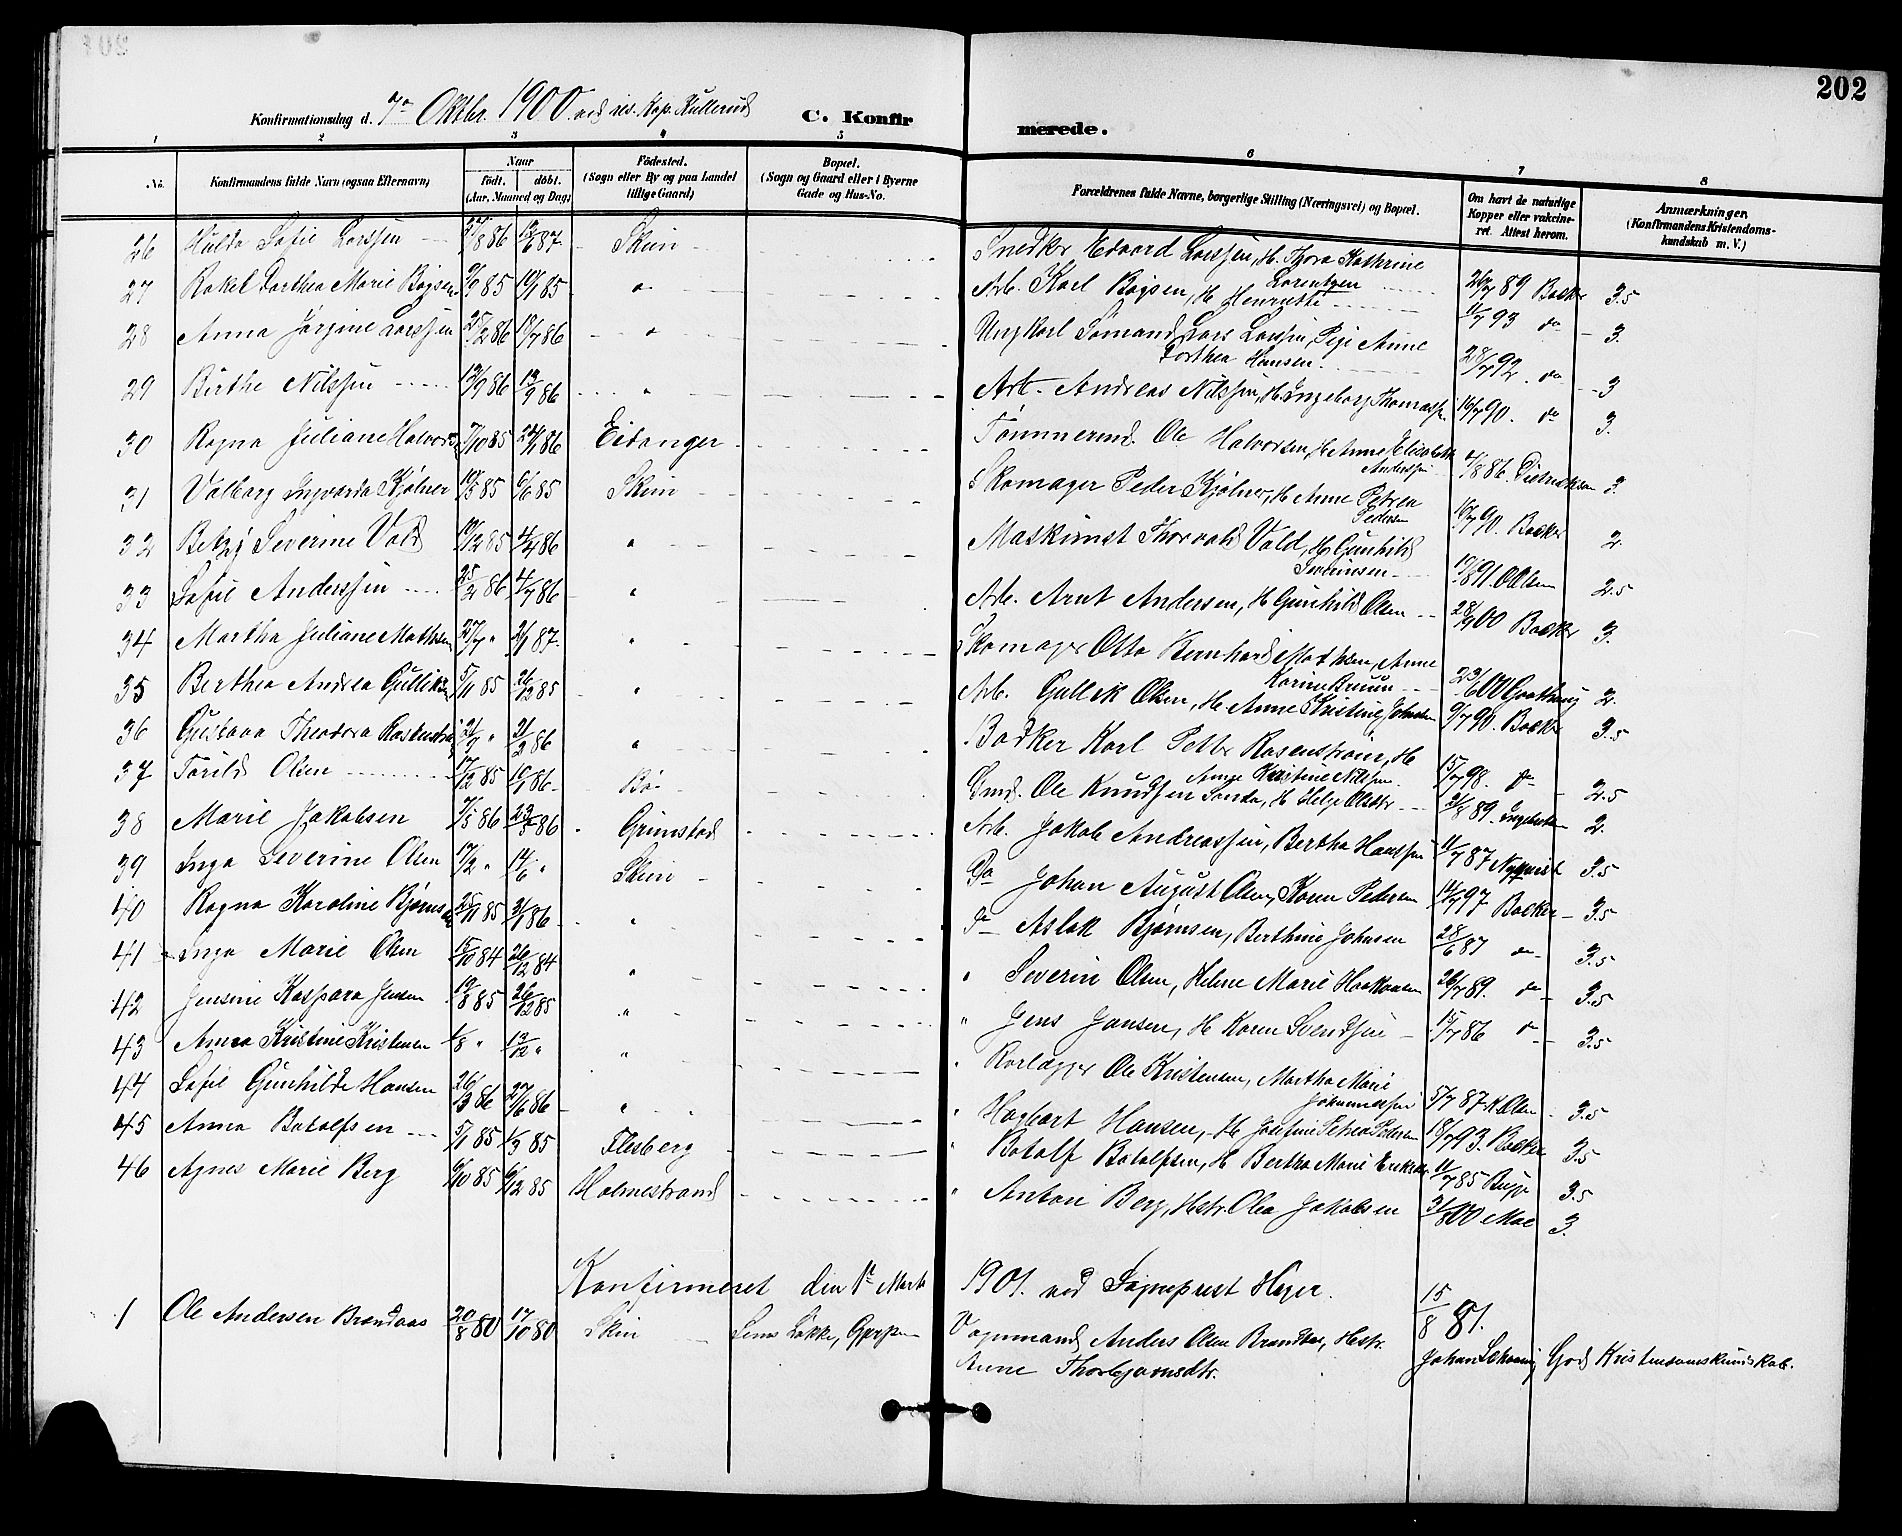 202
Konfirmationsdag d. 7de Oktbr. 1900 ved res. Kap. Kullerud C. Konfirmerede.
1 2 3 4 5 6 7 8
No. Konfirmandens fulde Navn (ogsaa Efternavn) Naar født. døbt. (Aar, Maaned og Dag) Fødested. (Sogn eller By og paa Landet tillige Gaard) Bopæl. (Sogn og Gaard eller i Byerne Gade og Hus-No. Forældrenes fulde Navne, borgerlige Stilling (Næringsvei) og Bopæl. Om havt de naturlige Kopper eller vakcineret. Attest herom. Anmærkninger. (Konfirmandens Kristendomskundskab m. V.)
26 Hulda Sofie Larssen 86 87 Skien Snedker Edvard Larssen, H. Thora Kathrine Lorentzen 26/7 89 Backer 3.5
27 Rakel Dorthea Marie Bøysen 85 85 " Arb. Karl Bøysen, H. Henriette 93 do 3.
28 Anna Jørgine Larssen 25/2 86 18/7 86 " Ungkarl Sømand Lars Larssen, Pige Anne Dorthea Hansen. 28/7 92. do 3
29 Birthe Nilssen 86 86 " Arb. Andreas Nilssen, H. Ingeborg Thomassen 16/7 90. do 3.
30 Ragna Juliane Halvorsen 7/10 85 24/1 86 Eidanger Tømmermd. Ole Halvorsen, H. Anne Elisabeth Anderssen 86. Diedrickson 3.
31 Valborg Ingvarda Kjølner 19/5 85 6/6 85 Skien Skomager Peder Kjølner, H. Anne Petrea Pedersen 16/7 90. Backer 2.
32 Betzy Severine Vold 19/12 85 4/4 86 " Maskinist Thorvald Vold, H. Gunhild Severinsen 17/8 91. Olsen 2.5
33 Sofie Anderssen 25/2 86 4/7 86 " Arb. Arnt Andersen, H. Gunhild Olsen 00 Backer 3.
34 Martha Juliane Mathisen " 2/1 87 " Skomager Otto Bernhard Mathisen, Anne Karine Bruun 23/6 00 2.
35 Berthea Andrea Gulliksen 5/11 85 26/12 85 " Arb. Gullik Olsen, H. Anne Kristine Johnsen 9/7 90. Backer 3.5
36 Gustava Theodora Rosenstrøm " 86 " Bødker Karl Petter Rosenstrøm, H. Anne Kristine Nilssen 15/7 98. do 2.5
37 Torild Olsen 17/12 85 10/1 86 Bø Gmd. Ole Knudsen Sanda, H. Helge Olsdtr. 89. 2.
38 Marie Jakobsen 7/5 86 23/5 86 Grimstad Arb. Jakob Andreassen, Bertha Hanssen 11/7 87 Nyquist 3.5
39 Inga Severine Olsen 17/2 " 14/6 " Skien Do Johan August Olsen, Karen Pedersen 14/7 97 Backer 3.5
40 Ragna Karoline Bjørnsen 25/11 85 3/1 86 " Do Aslak Bjørnsen, Berthine Johnsen 28/6 87 do 3.5
41 Inga Marie Olsen 15/10 84 26/12 84 " " Severin Olsen, Helene Marie Haakonsen 26/7 89. do 3.5
42 Jensine Kaspara Jensen 19/8 85 26/12 85 " " Jens Jansen, H. Karen Svendsen 15/7 86 do 3.5
43 Anna Kristine Kristensen 1/8 " 13/12 " " " Rørlægger Ole Kristensen, Martha Marie Johannessen 5/7 87 K. Olsen 3.5
44 Sofie Gunhilde Hansen 26/3 86 27/6 86 " " Hagbart Hansen, H. Josefine Petrea Petersen 18/7 93. Backer 3.5
45 Anna Botolfsen 5/1 85 1/3 85 Flesberg " Botolf Botolfsen, H. Bertha Marie 11/7 85 3.5
46 Agnes Marie Berg 6/10 85 6/12 85 Holmestrand " Anton Berg, Hstr. Olea Jakobsen 3/8 00 Moe 3.
Konfirmeret den 1ste Marts 1901. ved Sogneprest Høyer.
1 Ole Andersen Brandaas 20/8 80 17/10 80 Skien Løkke, Gjerpen Vognmand Anders Olsen Brandaas, Hstr. Anne Thorbjørnsdtr. 15/8 81. Johan Schaaning God Kristendomskundskab.